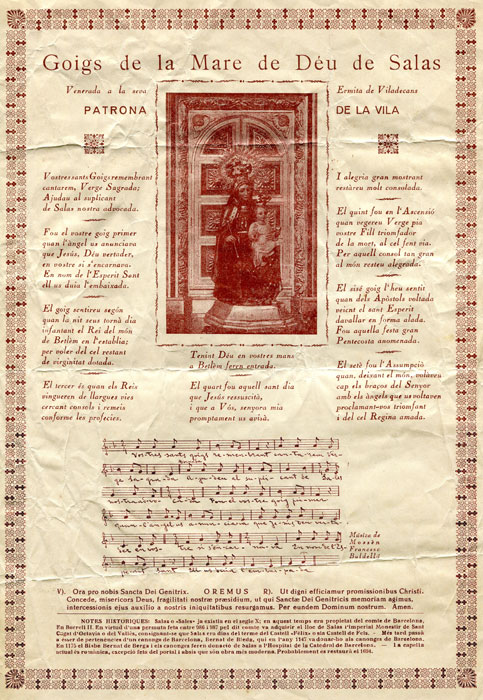 Goigs de la Mare de Déu de Salas
Venerada a la seva Ermita de Viladecans
PATRONA DE LA VILA
Vostres sants Goigs remembrant
cantarem, Verge Sagrada;
Ajudau al suplicant
de Salas nostra advocada.
Fou el vostre goig primer
quan l'àngel us anunciara
que Jesús, Déu vertader,
en vostre si s'encarnava.
En nom de l'Esperit Sant
ell us duia l'embaixada.
El goig sentireu segón
quan la nit seus tornà dia
infantant el Rei del món
de Betlèm en l'establia;
per voler del cel restant
de virginitat dotada.
El tercer és quan els Reis
vingueren de llargues vies
cercant consols i remeis
conforme les profecies.
Tenint Déu en vostres mans
a Betlèm feren entrada.
El quart fou aquell sant dia
que Jesús ressuscità,
i que a Vós, senyora mia
promptament us avisà.
I alegria gran mostrant
restàreu molt consolada.
El quint fou en l'Ascensió
quan vegereu Verge pia
vostre Fill triomfador
de la mort, al cel fent via.
Per aquell consol tan gran
al món resteu alegrada.
El sisé goig l'heu sentit
quan dels Apòstols voltada
veient el sant Esperit
davallar en forma alada.
Fou aquella festa gran
Pentecosta anomenada.
El setè fou l'Assumpció
quan, deixant el món, volàveu
cap els braços del Senyor
amb els àngels que us voltaven
proclamant-vos triomfant
i del cel Regina amada.
Vostres sants goigs remembrant can-ta-rem Ver-
Música de
Mossèn
Francesc
Baldelló
V). Ora pro nobis Sancta Dei Genitrix. OREMUS R). Ut digni officiamur promissionibus Christi.
Concede, misericors Deus, fragilitati nostræ præsidium, ut qui Sanctæ Dei Genitricis memoriam agimus,
intercessionis ejus auxilio a nostris iniquitatibus resurgamus. Per eundem Dominum nostrum. Amen.
NOTES HISTORIQUES: Salas o «Sales» ja existia en el sigle X; en aquest temps era propietat del comte de Barcelona,
En Borrell II. En virtut d'una permuta feta entre 986 i 987 pel dit comte va adquirir el lloc de Salas l'imperial Monestir de Sant
Cugat d'Octavià o del Vallès, consignant-se que Salas era dins del terme del Castell «Félix» o sia Castell de Fels. - Més tard passà
a esser de pertenencia d'un canonge de Barcelona, Bernat de Riudà, qui en l'any 1147 va donar-lo als canonges de Barcelona.
En 1175 el Bisbe Bernat de Berga i els canonges feren donació de Salas a l'Hospital de la Catedral de Barcelona. - La capella
actual és romànica, excepció feta del portal i absis que són obra més moderna. Probablement es restaurà el 1604.